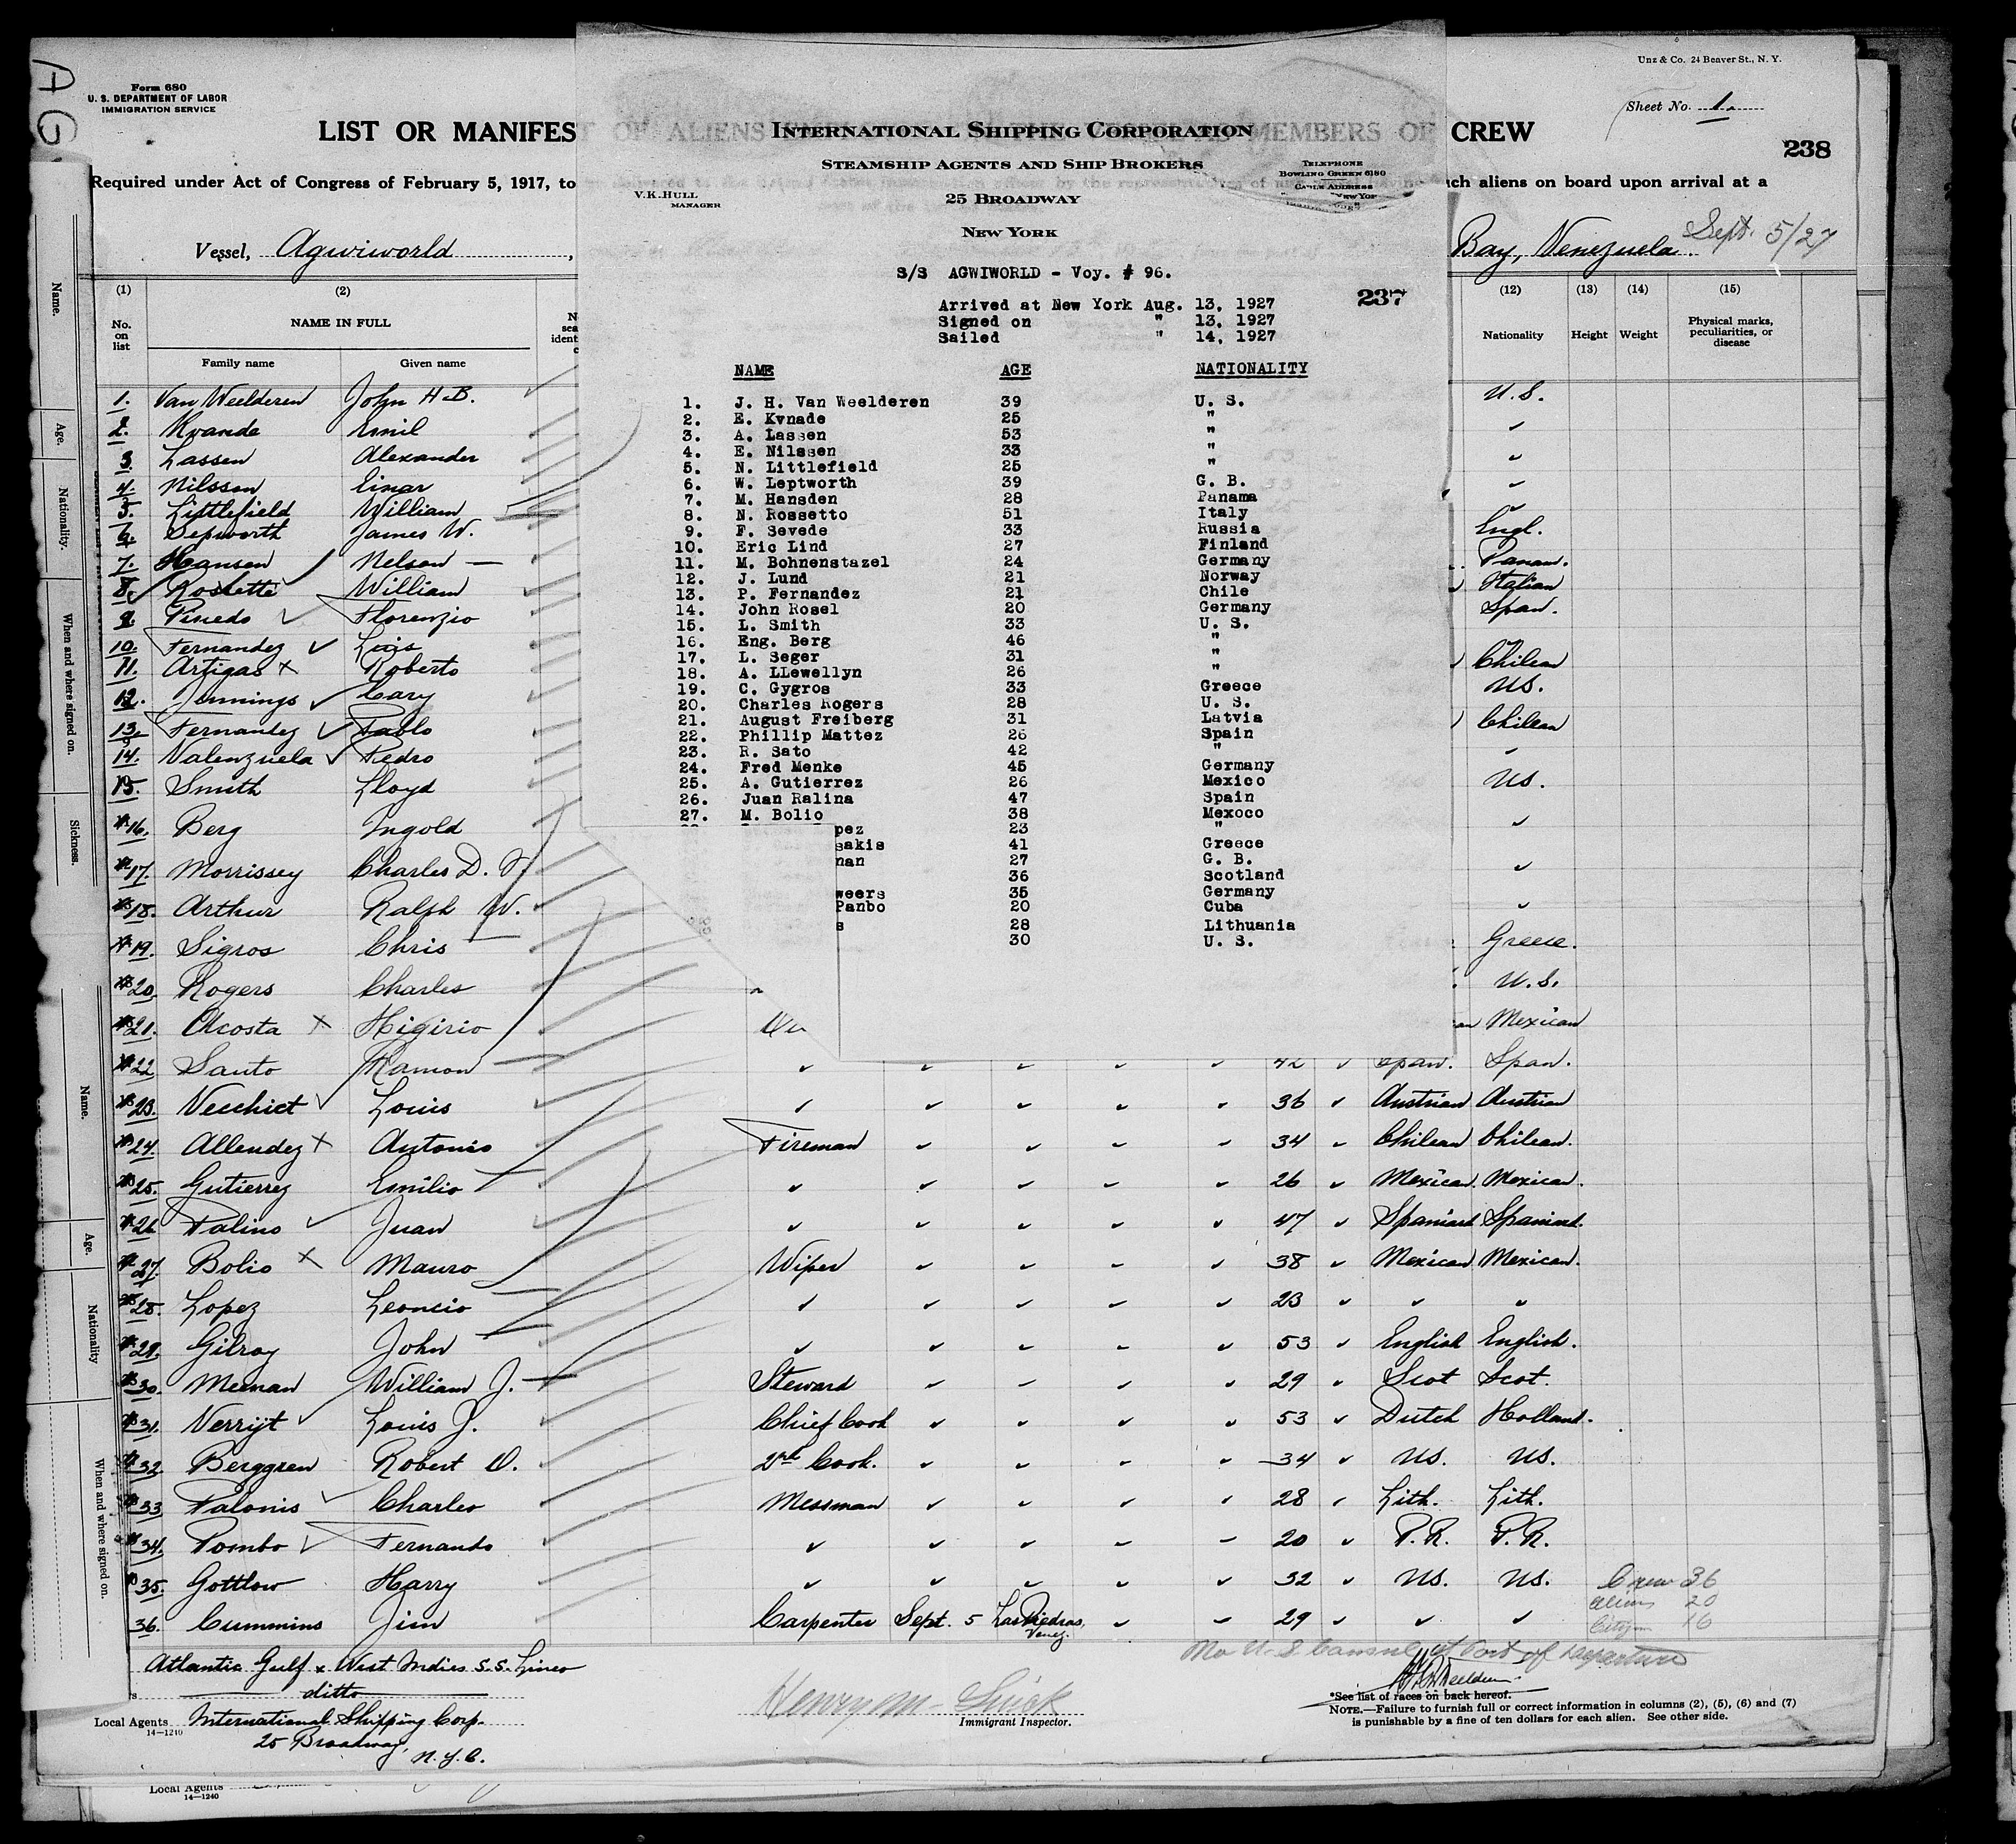 Unz & Co. 24 Beaver St., N. Y.
Form 680
U. S. DEPARTMENT OF LABOR
IMMIGRATION SERVICE
AG
Sheet No. 1.
LIST OR MANIFEST OF ALIENS MEMBERS OF CREW
238
Required under Act of Congress of February 5, 1917, to
ch aliens on board upon arrival at a
Vessel, Agwiworld
Bay, Venezuela. Sept. 5/27
International Shipping Corporation
Steamship Agents and Ship Brokers
25 Broadway
New York
V.K. Hull
Manager
Telephone
Bowling Green 6180
Cable Address
S/S AGWIWORLD - Voy. # 96.
237
Arrived at New York Aug. 13, 1927
Signed on " 13, 1927
Sailed " 14, 1927
NAME AGE NATIONALITY
1. J. H. Van Weelderen 39 U. S.
2. E. Kvnade 25 "
3. A. Lassen 53 "
4. E. Nilssen 33 "
5. N. Littlefield 25 "
6. W. Leptworth 39 G. B.
7. M. Hansden 28 Panama
8. N. Rossetto 51 Italy
9. F. Sevede 33 Russia
10. Eric Lind 27 Finland
11. M. Bohnenstazel 24 Germany
12. J. Lund 21 Norway
13. P. Fernandez 21 Chile
14. John Rosel 20 Germany
15. L. Smith 33 U. S.
16. Eng. Berg 46 "
17. L. Seger 31 "
18. A. LLewellyn 26 "
19. C. Gygros 33 Greece
20. Charles Rogers 28 U. S.
21. August Freiberg 31 Latvia
22. Phillip Mattez 26 Spain
23. R. Sato 42 "
24. Fred Menke 45 Germany
25. A. Gutierrez 26 Mexico
26. Juan Ralina 47 Spain
27. M. Bolio 38 Mexoco
pez 23 "
sakis 41 Greece
nan 27 G. B.
36 Scotland
weers 35 Germany
Panbo 20 Cuba
s 28 Lithuania
30 U. S.
(1) (2) (12) (13) (14) (15)
No. on list
NAME IN FULL
Family name Given name
Nationality Height Weight Physical marks, peculiarities, or disease
1. Van Weelderen John H.B. U.S.
2. Kvande Emil "
3. Lassen Alexander "
4. Nilsson Einar "
5. Littlefield William "
6. Depworth James W. Engl.
7. Hansen Nelson Panam.
8. Rossette William Italian
9. Pinedo Florenzio Span.
10. Fernandez Luis
11. Artigas Roberto Chilean
12. Jennings Cary US.
13. Fernandez Pablo Chilean
14. Valenzuela Pedro "
15. Smith Lloyd US.
16. Berg Ingold "
17. Morrissey Charles D. "
18. Arthur Ralph W. "
19. Sigros Chris Greece.
20. Rogers Charles U.S.
21. Acosta Higirio Mexican
22. Santo Ramon " " " " " 42 " Span. Span.
23. Vecchiet Louis " " " " " 36 " Austrian Austrian
24. Allendez Antonio Fireman " " " " 34 " Chilean Chilean.
25. Gutierrez Emilio " " " " " 26 " Mexican. Mexican.
26. Palino Juan " " " " " 47 " Spaniard Spaniard.
27. Bolio Mauro Wiper " " " " 38 " Mexican Mexican.
28. Lopez Leoncio " " " " " 23 " " "
29. Gilroy John " " " " " 53 " English English.
30. Meenan William J. Steward " " " " 29 " Scot Scot.
31. Verrijt Louis J. Chief Cook " " " " 53 " Dutch Holland.
32. Berggren Robert O. 2nd Cook. " " " " 34 " US. US.
33. Palonis Charles Messman " " " " 28 " Lith. Lith.
34. Pombo Fernando " " " " " 20 " P.R. P.R.
35. Gottlow Harry " " " " " 32 " US. US.
36. Cummins Jim Carpenter Sept. 5 Las Piedras, Venez. " " 29 " " "
Crew 36
Aliens 20
Citizen 16
No U.S. Consul at Port of Departure
Atlantic Gulf & West Indies S.S. Lines
ditto
Local Agents International Shipping Corp.
14—1240
25 Broadway,
N.Y.C.
Immigrant Inspector.
*See list of races on back hereof.
NOTE.—Failure to furnish full or correct information in columns (2), (5), (6) and (7)
is punishable by a fine of ten dollars for each alien. See other side.
Local Agents
14—1240
Name.
Age.
Nationality.
When and where signed on.
Sickness.
Name.
Age.
Nationality
When and where signed on.